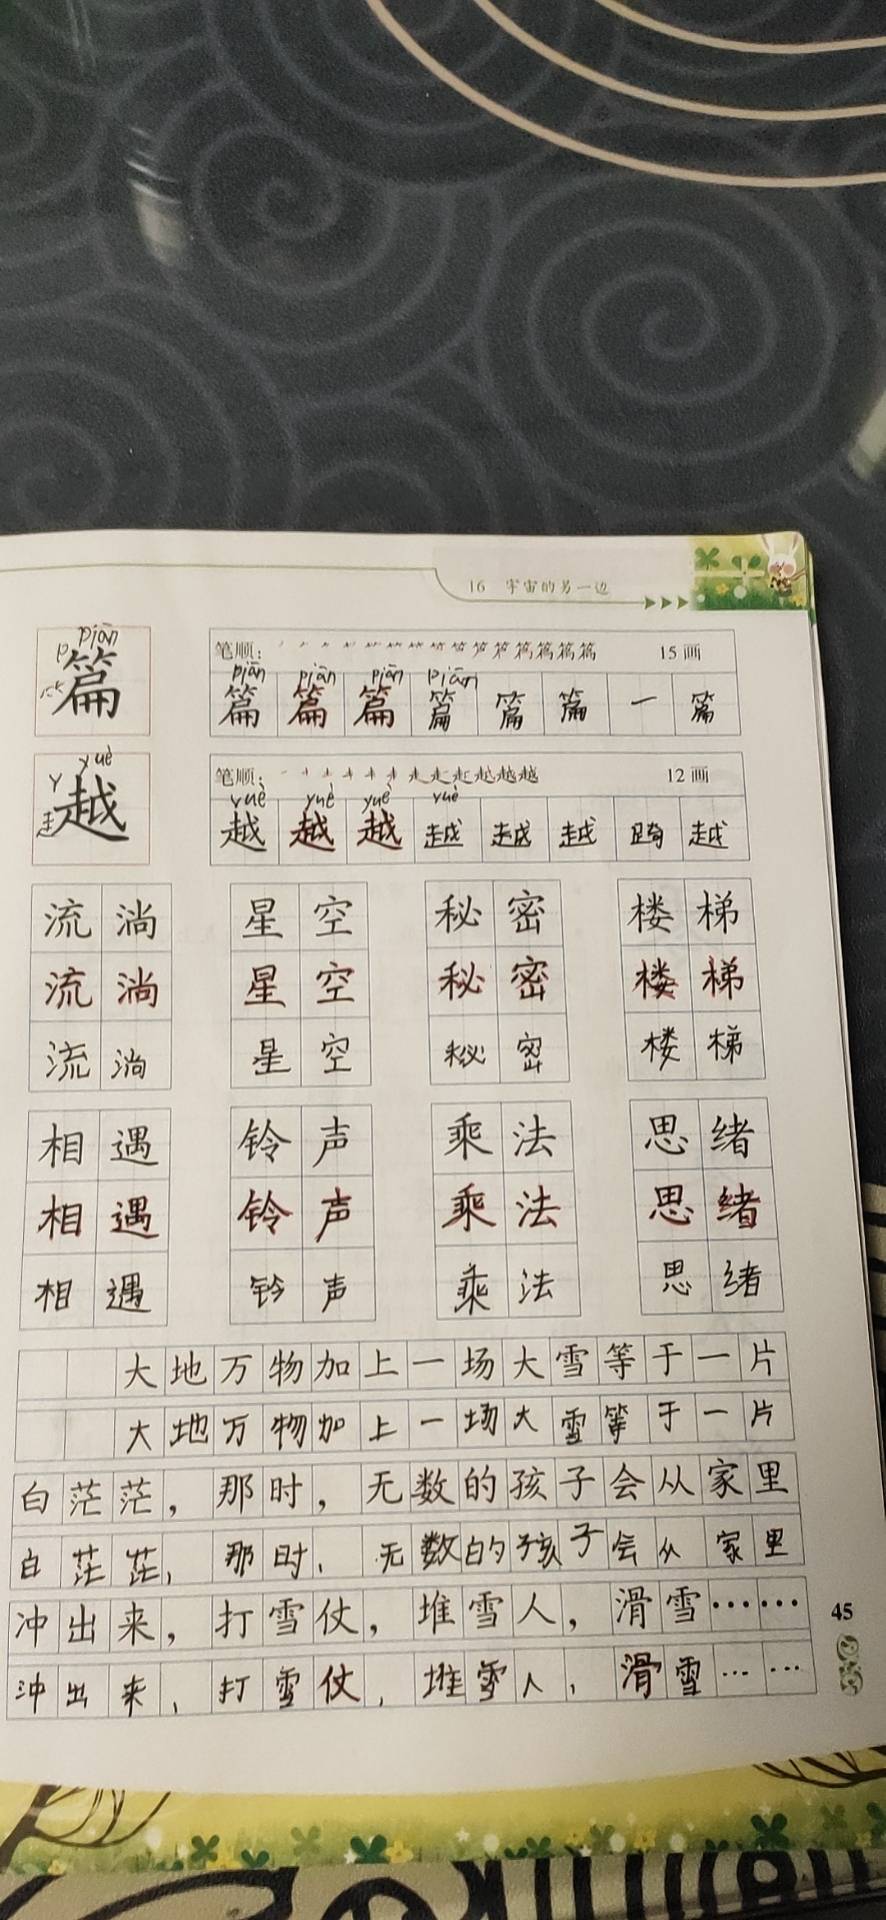 16 宇宙的另一边
piān
p
⺮
篇
笔顺： 15画
piān piān piān piān
篇 篇 篇 篇 篇 篇 一 篇
yuè
Y
走
越
笔顺： 12画
yuè yuè yuè yuè
越 越 越 越 越 越 跨 越
流淌 星空 秘密 楼梯
流淌 星空 秘密 楼梯
流淌 星空 秘密 楼梯
相遇 铃声 乘法 思绪
相遇 铃声 乘法 思绪
相遇 铃声 乘法 思绪
大地万物加上一场大雪等于一片
大地万物加上一场大雪等于一片
白茫茫，那时，无数的孩子会从家里
白茫茫，那时，无数的孩子会从家里
冲出来，打雪仗，堆雪人，滑雪……
冲出来，打雪仗，堆雪人，滑雪……
45